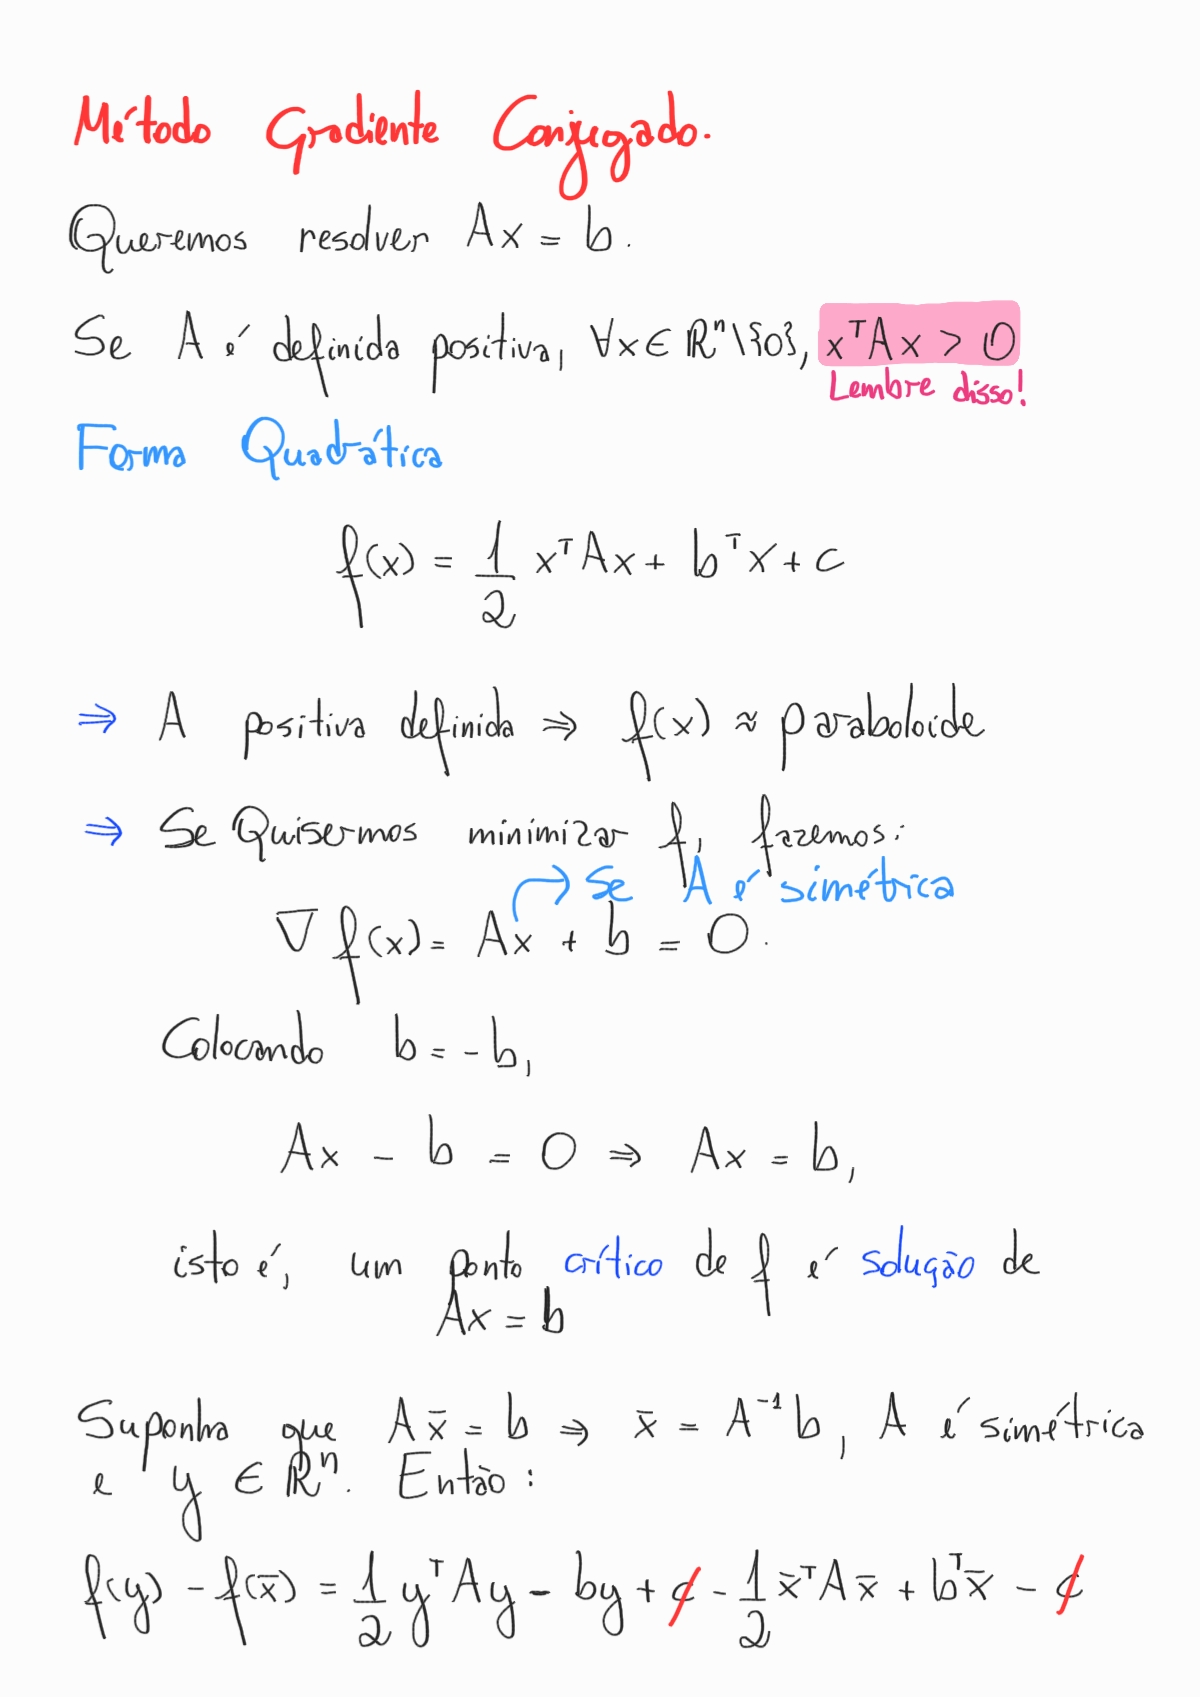 Método Gradiente Conjugado.
Queremos resolver Ax = b.
Se A é definida positiva, ∀x ∈ ℝⁿ\{0}, xᵀAx > 0
Lembre disso!
Forma Quadrática
f(x) = 1/2 xᵀAx + bᵀx + c
⇒ A positiva definida ⇒ f(x) ≈ paraboloide
⇒ Se Quisermos minimizar f, fazemos:
→ Se A é simétrica
∇f(x) = Ax + b = 0.
Colocando b = -b,
Ax - b = 0 ⇒ Ax = b,
isto é, um ponto crítico de f é solução de
Ax = b
Suponha que Ax̄ = b ⇒ x̄ = A⁻¹b, A é simétrica
e y ∈ ℝⁿ. Então:
f(y) - f(x̄) = 1/2 yᵀAy - by + c - 1/2 x̄ᵀAx̄ + bᵀx̄ - c